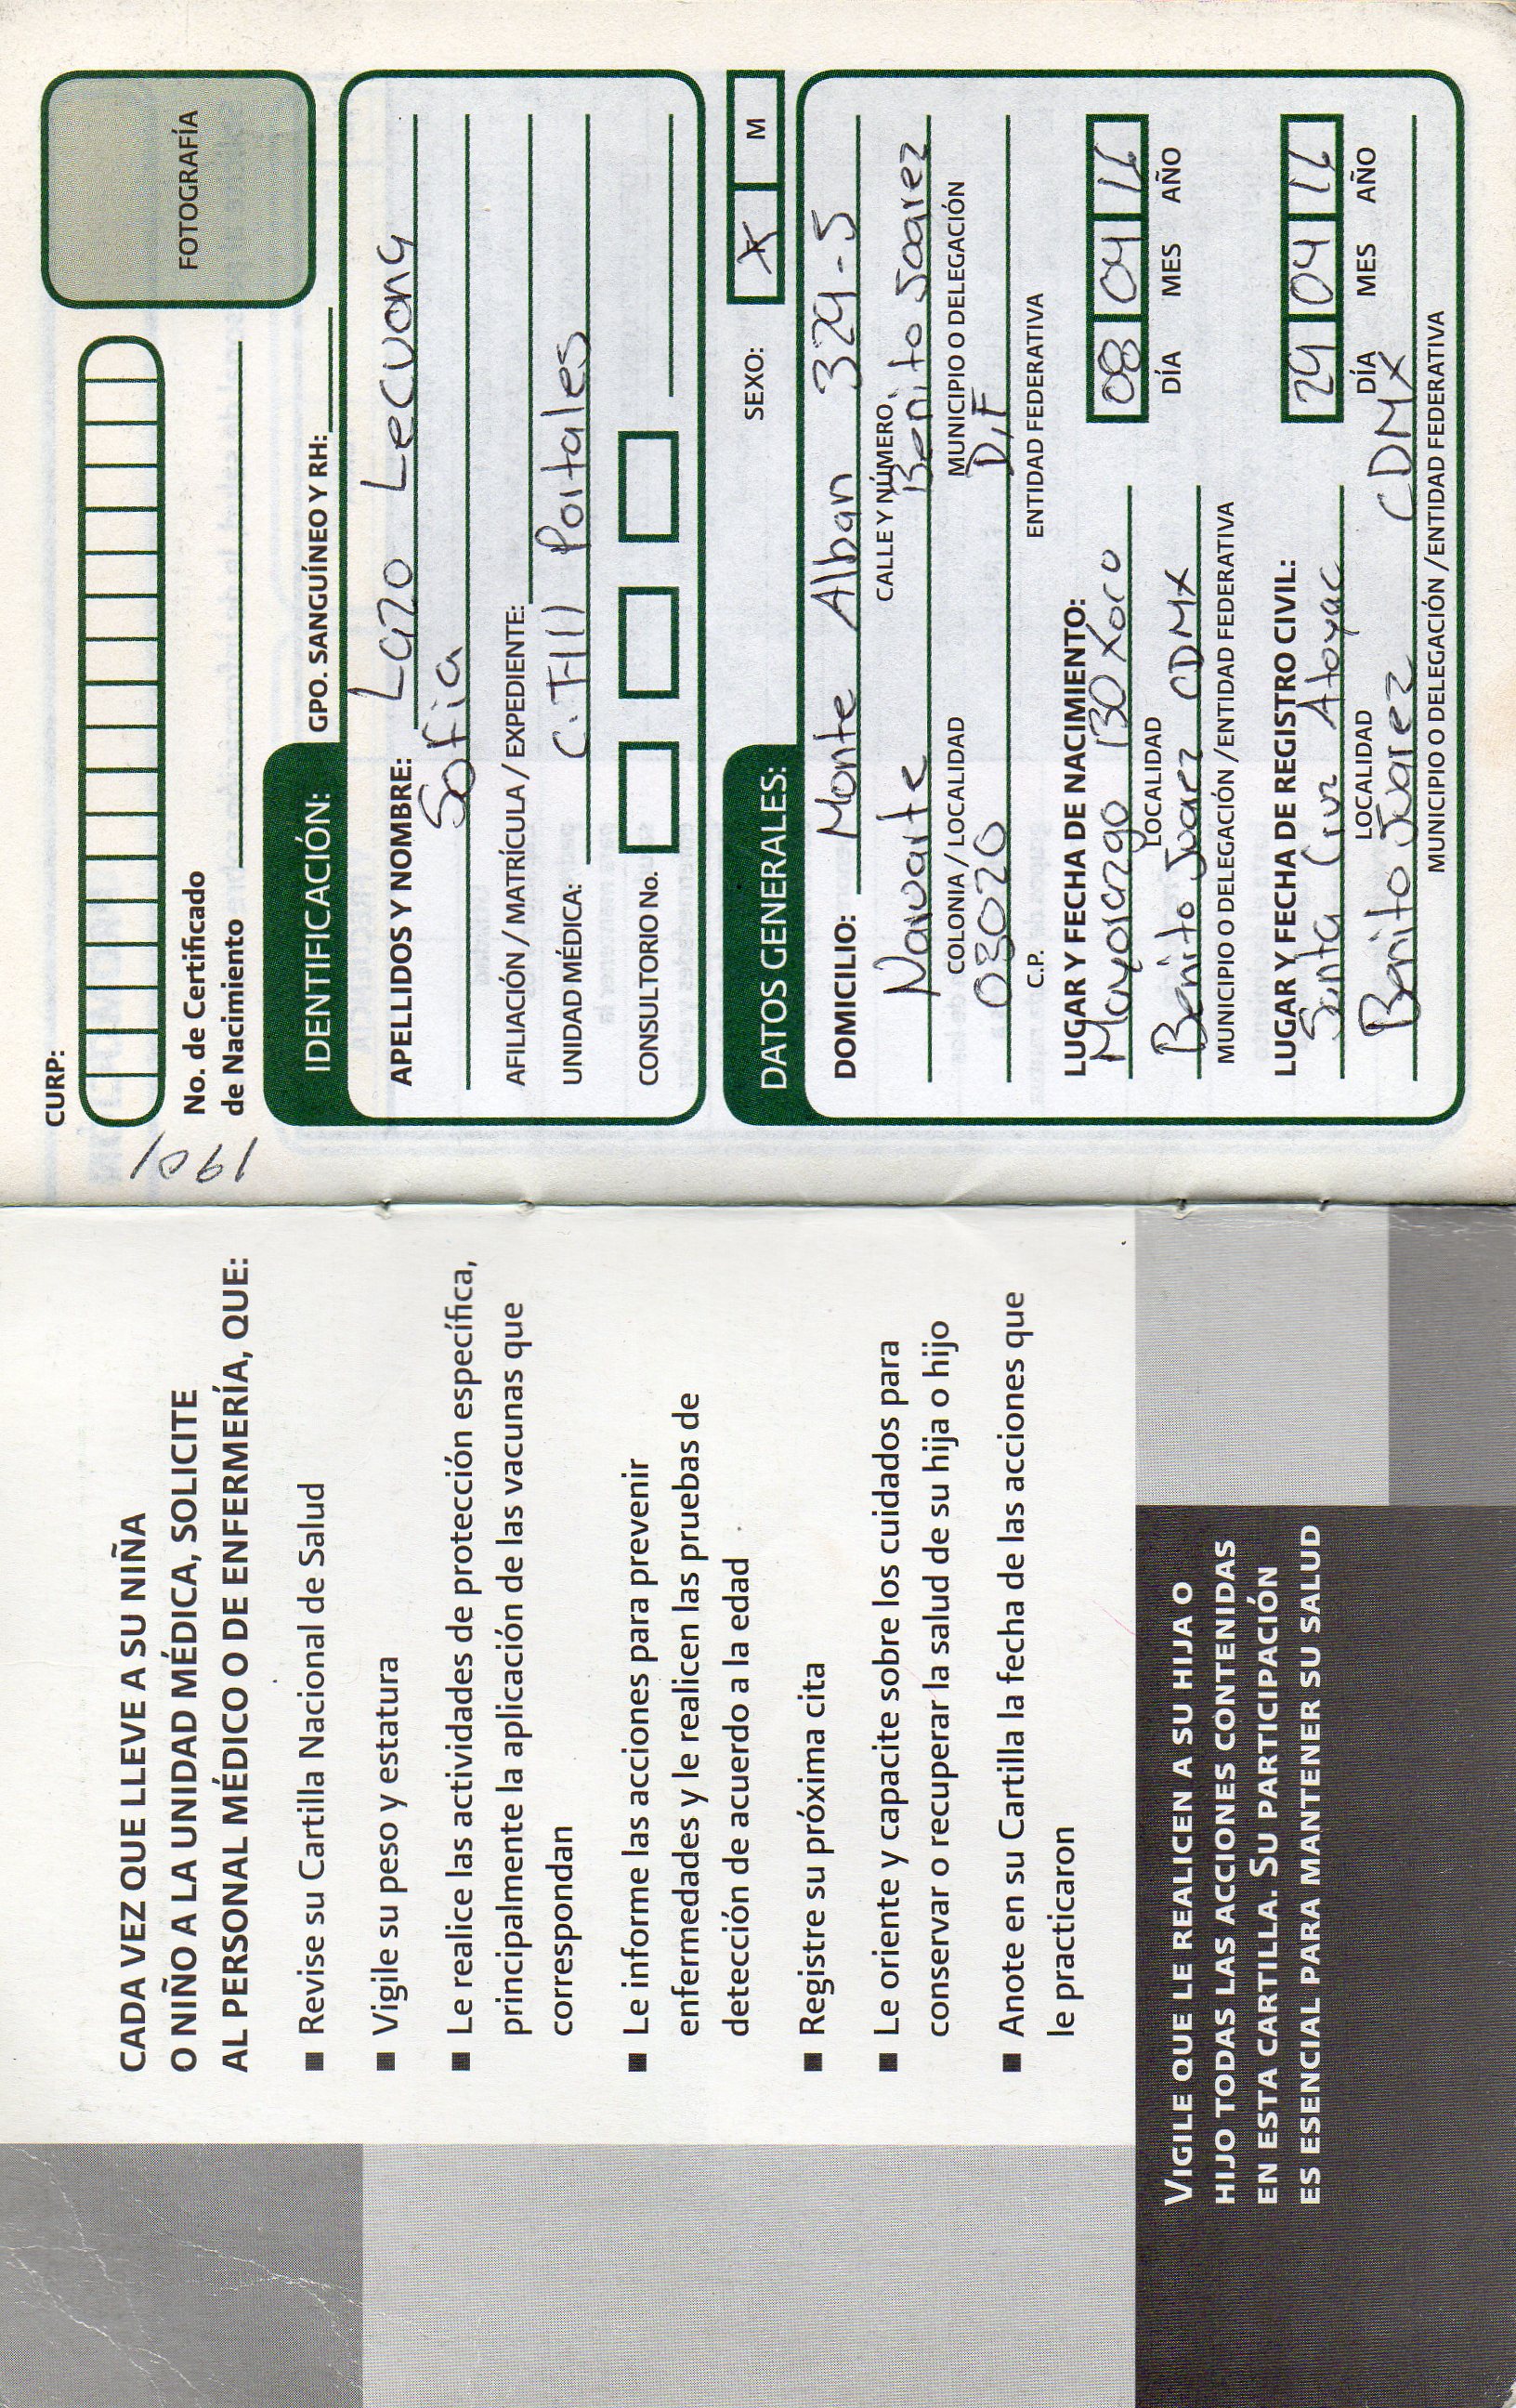 CADA VEZ QUE LLEVE A SU NIÑA
O NIÑO A LA UNIDAD MÉDICA, SOLICITE
AL PERSONAL MÉDICO O DE ENFERMERÍA, QUE:
■ Revise su Cartilla Nacional de Salud
■ Vigile su peso y estatura
■ Le realice las actividades de protección específica,
principalmente la aplicación de las vacunas que
correspondan
■ Le informe las acciones para prevenir
enfermedades y le realicen las pruebas de
detección de acuerdo a la edad
■ Registre su próxima cita
■ Le oriente y capacite sobre los cuidados para
conservar o recuperar la salud de su hija o hijo
■ Anote en su Cartilla la fecha de las acciones que
le practicaron
VIGILE QUE LE REALICEN A SU HIJA O
HIJO TODAS LAS ACCIONES CONTENIDAS
EN ESTA CARTILLA. SU PARTICIPACIÓN
ES ESENCIAL PARA MANTENER SU SALUD
CURP:
FOTOGRAFÍA
No. de Certificado
de Nacimiento
IDENTIFICACIÓN:
GPO. SANGUÍNEO Y RH:
APELLIDOS Y NOMBRE: Lazo Lecuona
Sofia
AFILIACIÓN / MATRÍCULA / EXPEDIENTE:
UNIDAD MÉDICA: C.T-III Portales
CONSULTORIO No.
SEXO: X M
DATOS GENERALES:
DOMICILIO: Monte Alban 324-5
CALLE Y NÚMERO
Narvarte Benito Joarez
COLONIA / LOCALIDAD MUNICIPIO O DELEGACIÓN
03020 D,F
C.P. ENTIDAD FEDERATIVA
LUGAR Y FECHA DE NACIMIENTO:
Mayorazgo 130 Xoco 08 04 16
LOCALIDAD DÍA MES AÑO
Benito Juarez CDMX
MUNICIPIO O DELEGACIÓN /ENTIDAD FEDERATIVA
LUGAR Y FECHA DE REGISTRO CIVIL:
Santa Cruz Atoyac 29 04 16
LOCALIDAD DÍA MES AÑO
Benito Juarez CDMX
MUNICIPIO O DELEGACIÓN /ENTIDAD FEDERATIVA